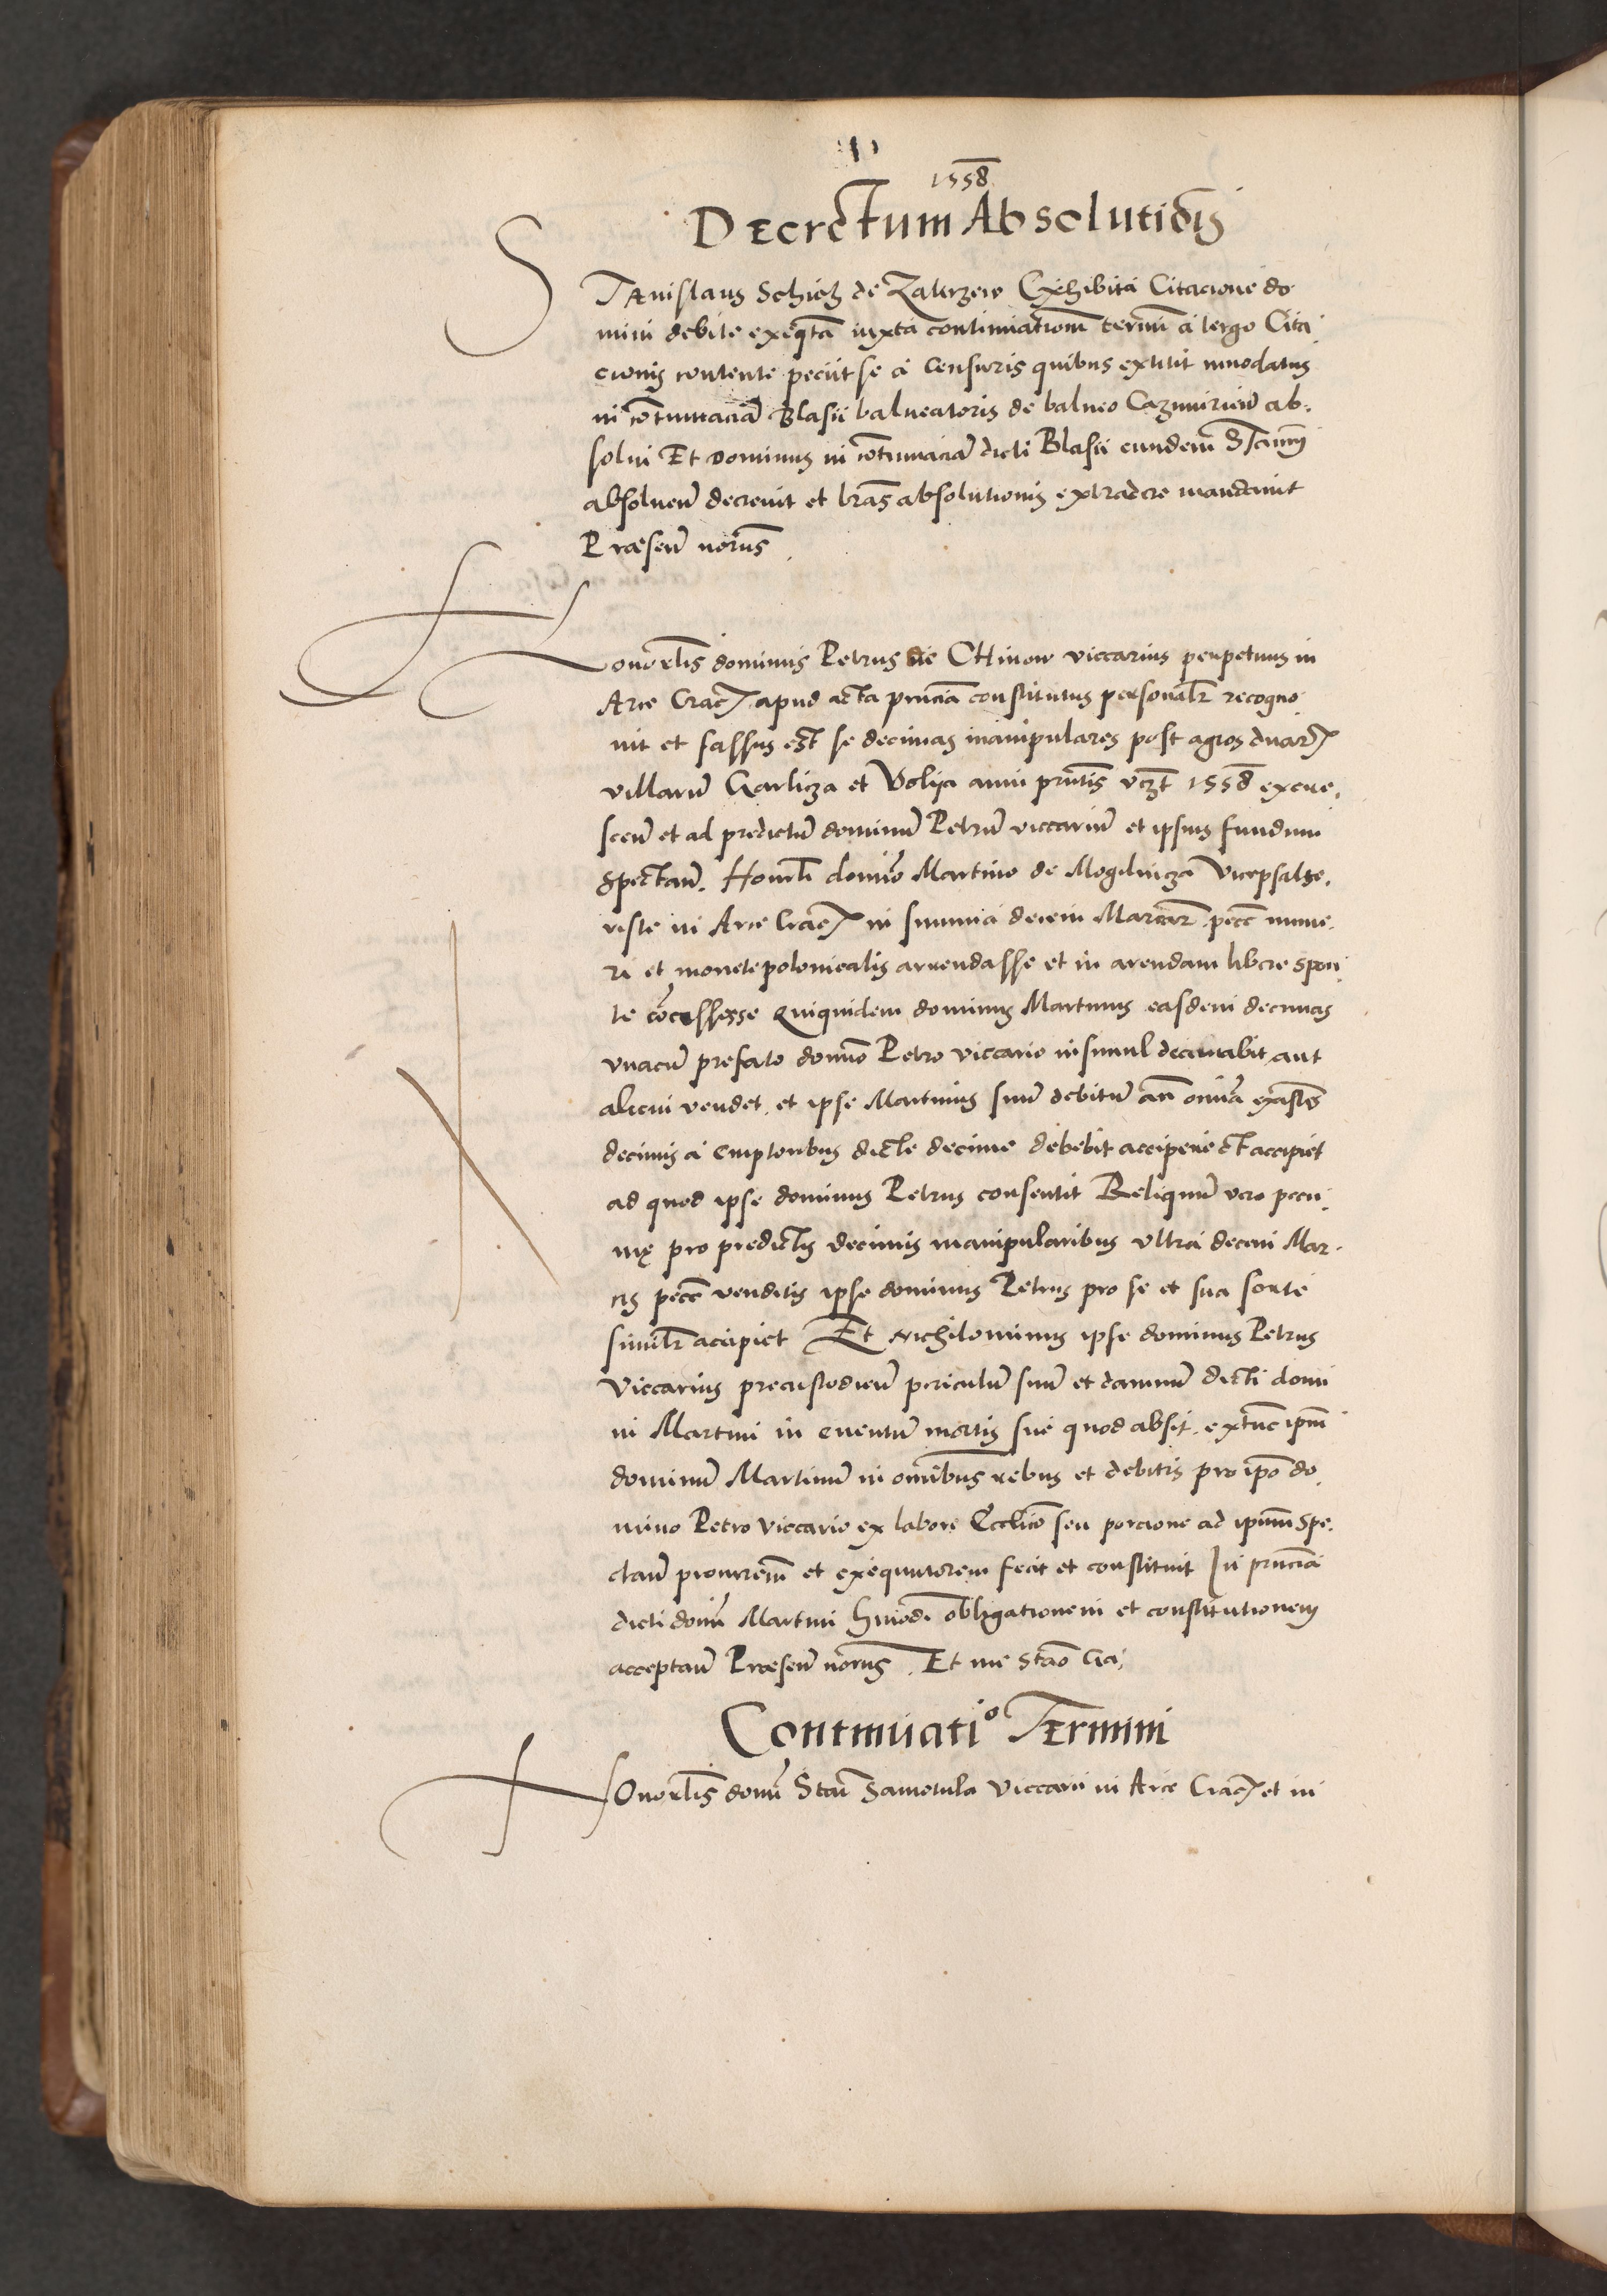 1558
Decretum Absolutiois
STanislaus Schich de Zaburzew Exhibita Citacione do
mini debite exeqtā iuxta continuationē termi a tergo Cita
cionis contente peciit se a Censuris quibus extitit innodatus
in cōtumaciā Blasii balneatoris de balneo Cazimirien̄ ab.
solui Et Dominus in cōtumaciā dicti Blasii eundem Stanm̄
absoluen̄ decreuit et lrās absolutionis extradere mandauit
Praesen̄ norūs
Honorl̄is dominus Petrus de Chinow viccarius perpetuus in
Arce Crac̄ apud acta pn̄cia constitutus personalr̄ recogno
uit et fassus est se decimas manipulares post agros duar̄
villaru̅ Garlicza et Volija anni pn̄tis vcz̄t 1558 excre.
scen̄ et ad predictu̅ dominu̅ Petru̅ viccariu̅ et ipsius fundum
Spectan̄. Honorl̄i domino Martino de Mogilnicza Vicepsalte.
riste in Arce Crac̄ in summa decem Marcar̄ pecc̄ nume.
ri et monete polonicalis arrendasse et in arendam libere spon
te cōcessisse Quiquidem dominus Martinus easdem decimas
vnacu̅ prefato domīo Petro viccario insimul decimabit aut
alicui vendet, et ipse Martinus suu̅ debitu̅ an̄ omīa exastes
decimis a emptoribus dicte decime debebit accipere et accipiet
ad quod ipse dominus Petrus consentit Reliquu̅ vero pecu.
nię pro predictis decimis manipularibus vltra decem Mar.
cis pecc̄ venditis ipse dominus Petrus pro se et sua sorte
similr̄ accipiet Et nichilominus ipse dominus Petrus
Viccarius precustodien̄ periculu̅ suu̅ et damnu̅ dicti domi
ni Martini in euentu̅ mortis sue quod absit, extūc ipm̄
dominu̅ Martinu̅ in omībus rebus et debitis pro ipō do
mino Petro viccario ex labore Ecclīco seu porcione ad ipsum spe.
ctan̄ procurem̄ et exequutorem fecit et constituit In pn̄cia
dicti domi Martini hmōdi obligationem et constitutionem
acceptan̄ Praesen̄ norūs. Et me Stāo Ga;
Continuatio Termini
HOnorl̄is domi Stai Samotula Viccarii in Arce Crac̄ et in